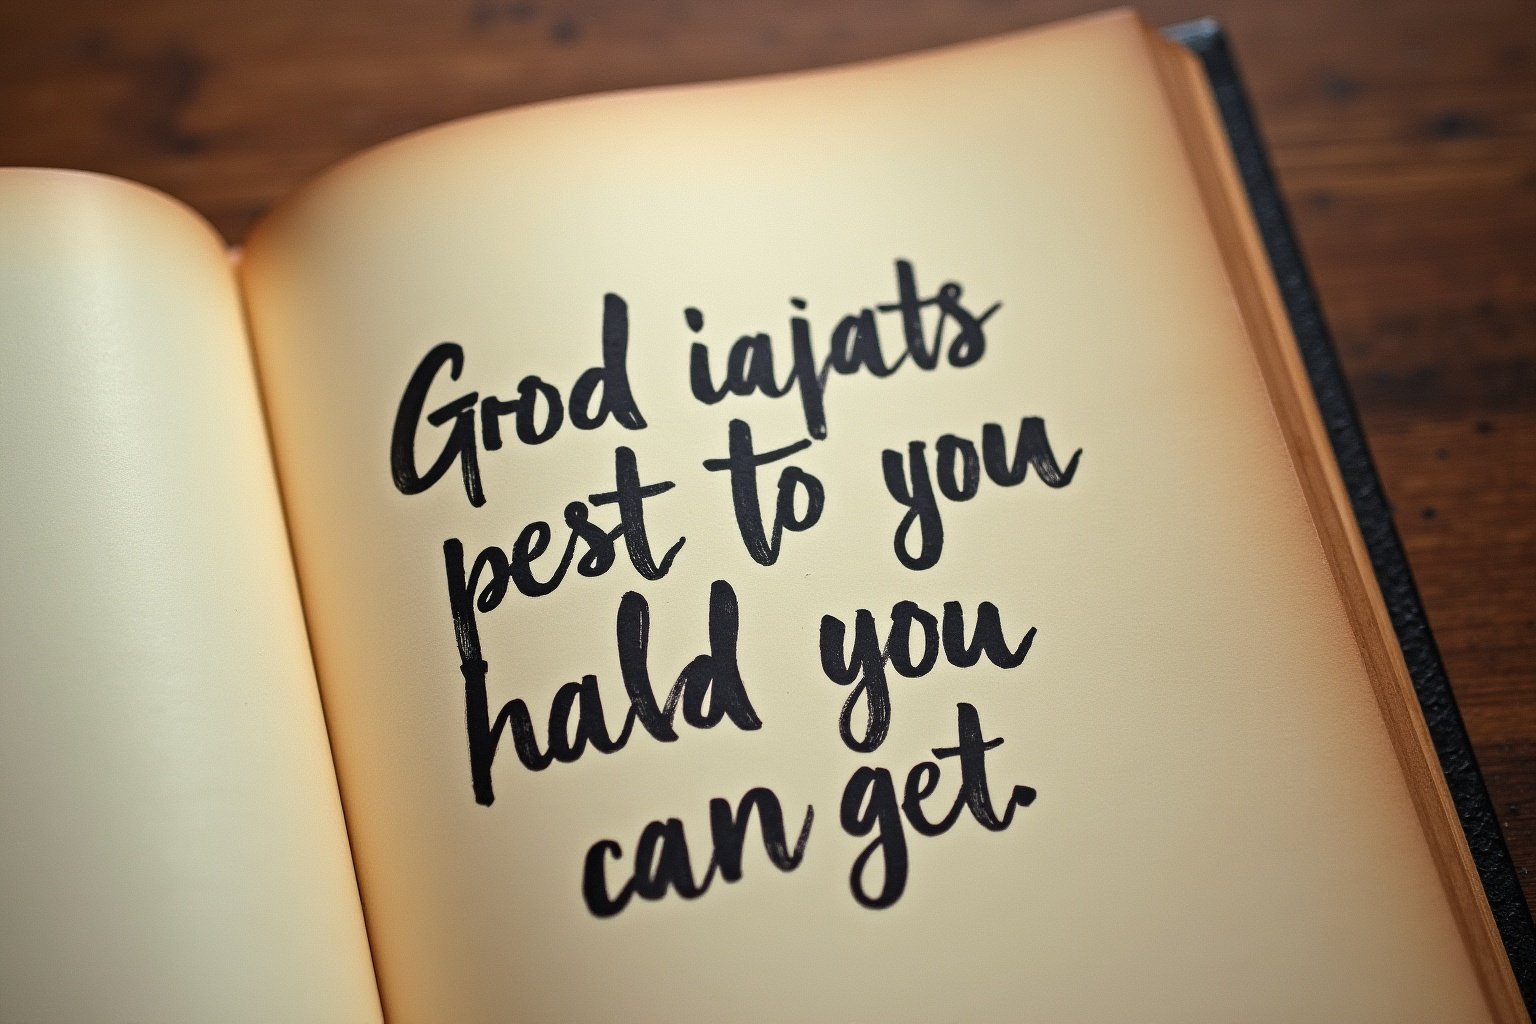 Grod iajats
pest to you
hald you
can get.